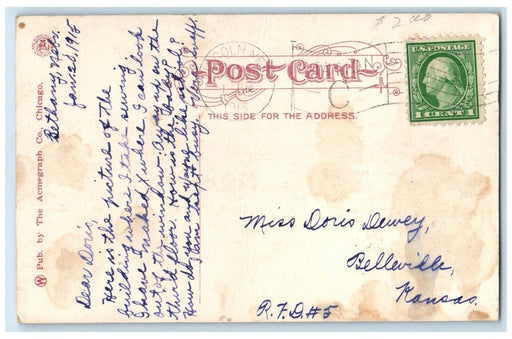 # 2 00
Post Card
THIS SIDE FOR THE ADDRESS.
U.S. POSTAGE
1 CENT 1
W Pub. by The Acmegraph Co., Chicago.
Bethany, Nebr.
Jan. 21, 1915
Dear Doris,
Here is the picture of the
building where I take sewing
I have marked where I can look
out of the window. Away up in the
third floor. How is the baby?
How do you and Wayne like school?
Miss Doris Dewey,
Belleville,
Kansas.
R.F.D.#5